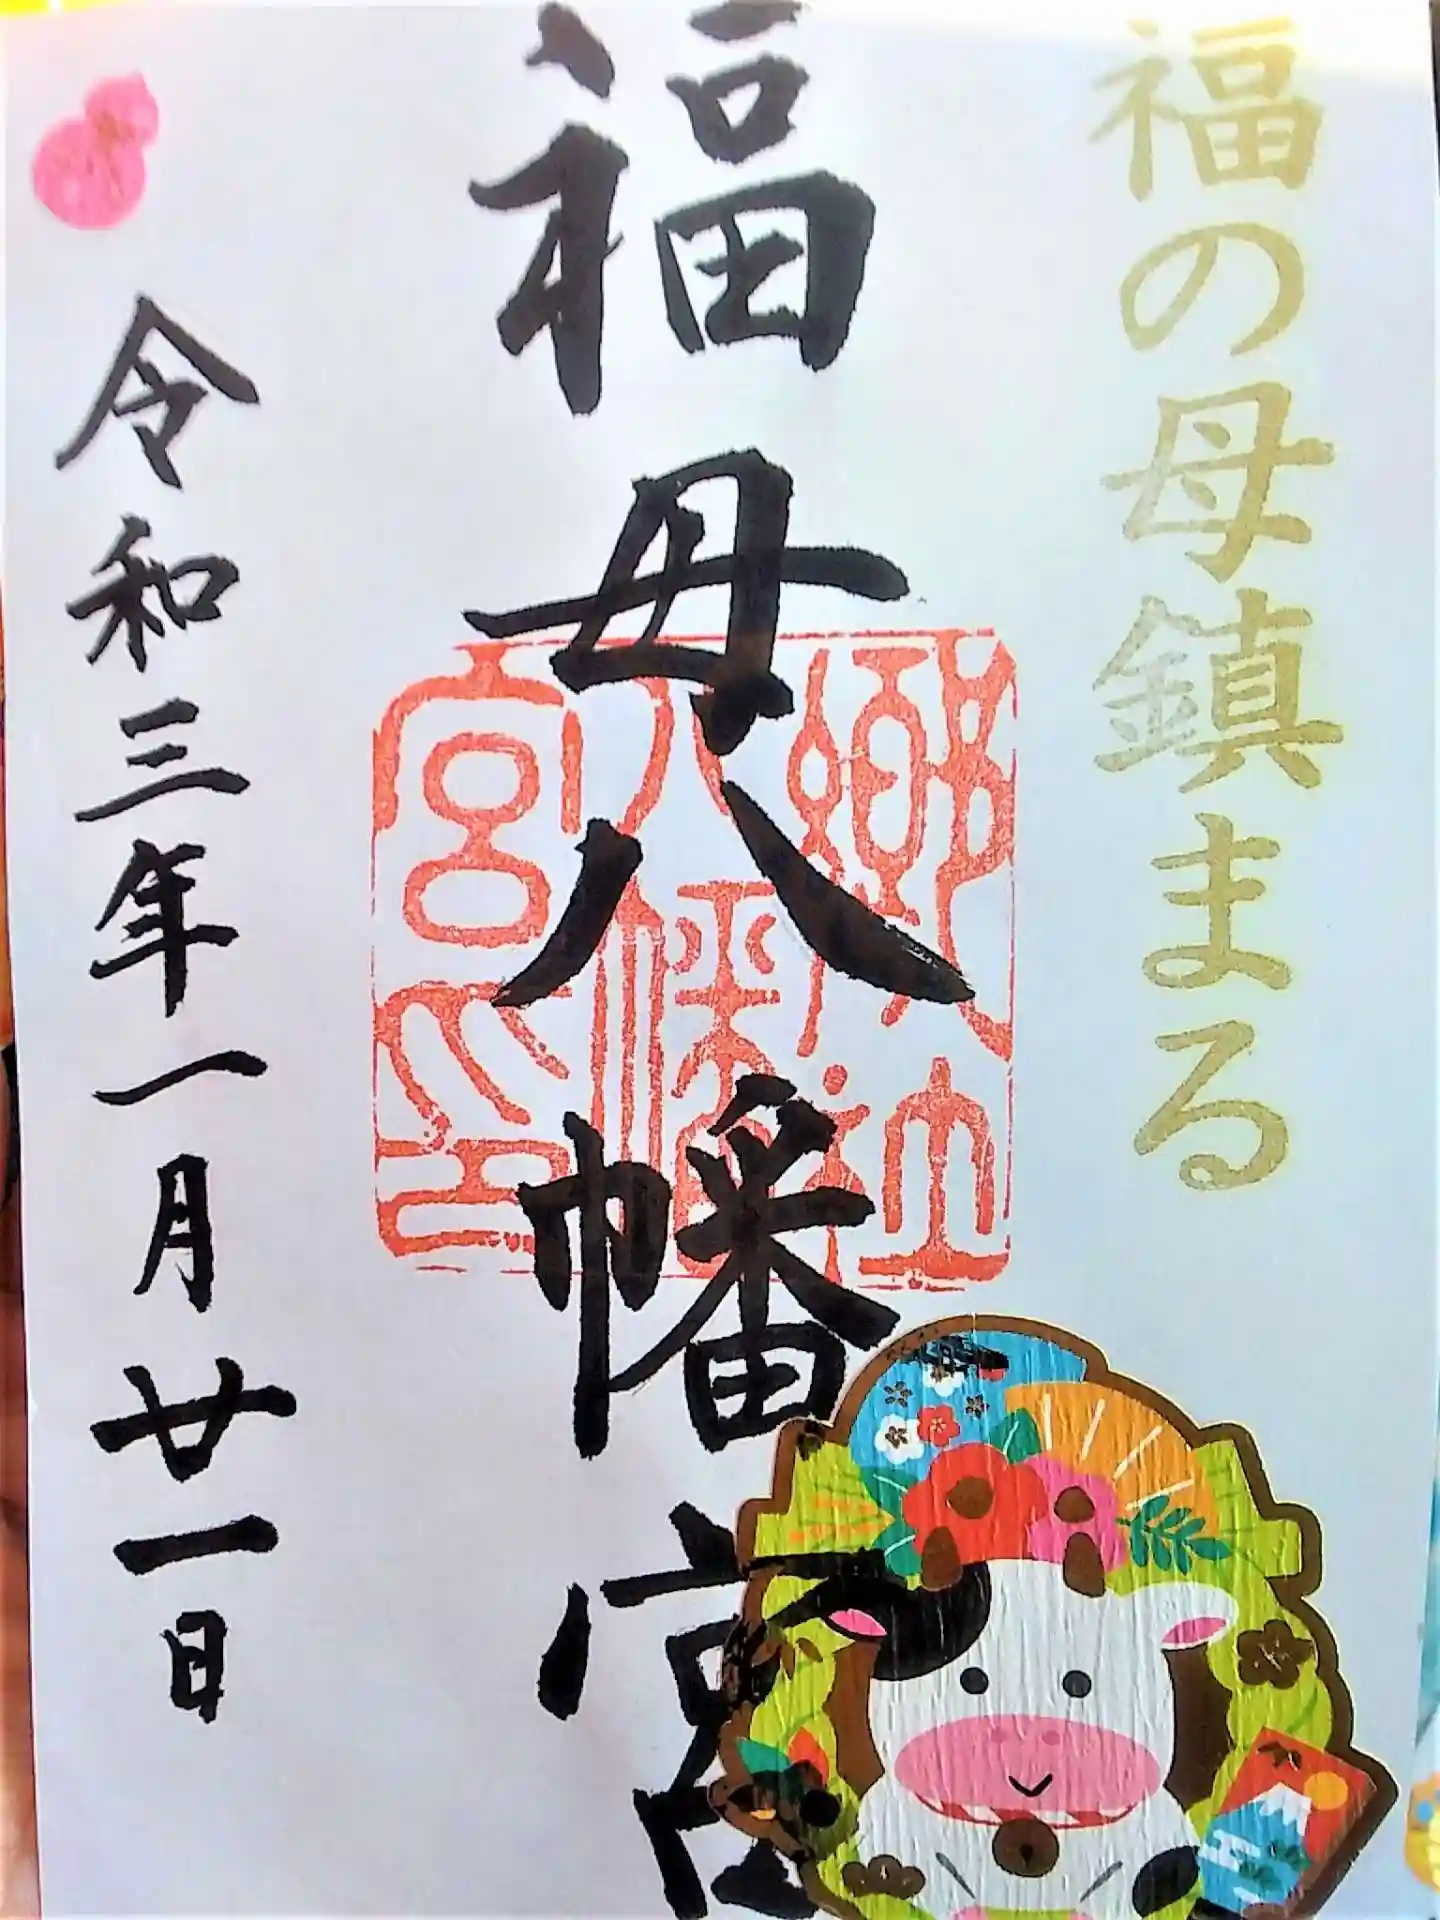 福の母鎮まる
福母八幡宮
郷社
八幡
宮之印
令和三年一月廿一日